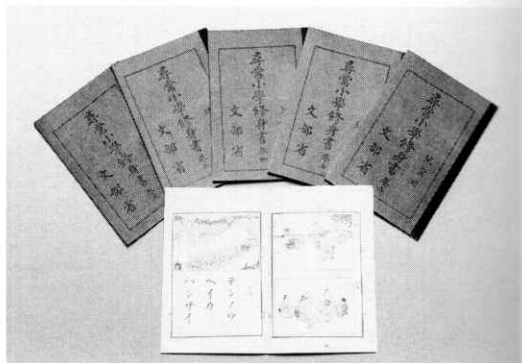 尋常小學修身書
文部省
尋常小學修身書
文部省
尋常小學修身書
文部省
尋常小學修身書
文部省
尋常小學修身書
文部省
テンノウ
ヘイカ
バンザイ